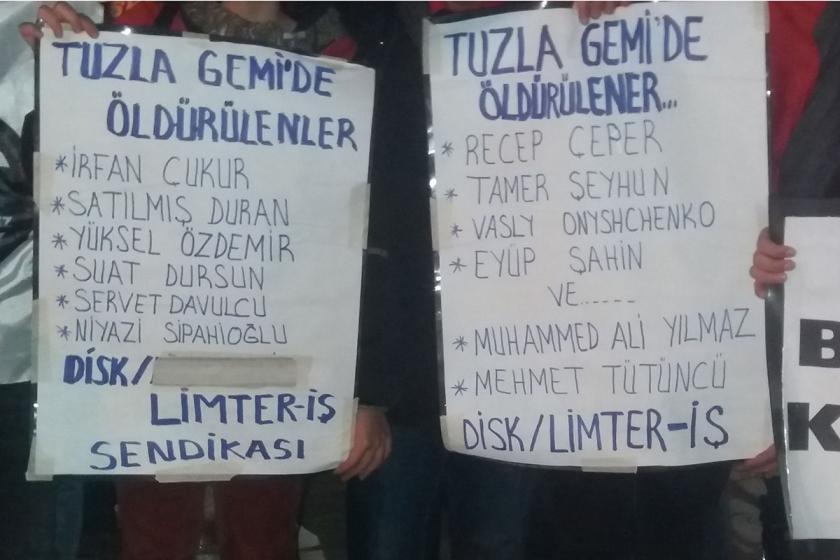 TUZLA GEMİ'DE
ÖLDÜRÜLENLER
*İRFAN ÇUKUR
*SATILMIŞ DURAN
*YÜKSEL ÖZDEMİR
*SUAT DURSUN
*SERVET DAVULCU
*NİYAZİ SİPAHİOĞLU
DİSK/
LİMTER-İŞ
SENDİKASI
TUZLA GEMİ'DE
ÖLDÜRÜLENER...
*RECEP ÇEPER
*TAMER ŞEYHUN
*VASLY ONYSHCHENKO
*EYÜP ŞAHİN
VE......
*MUHAMMED ALİ YILMAZ
*MEHMET TÜTÜNCÜ
DİSK/LİMTER-İŞ
B
K